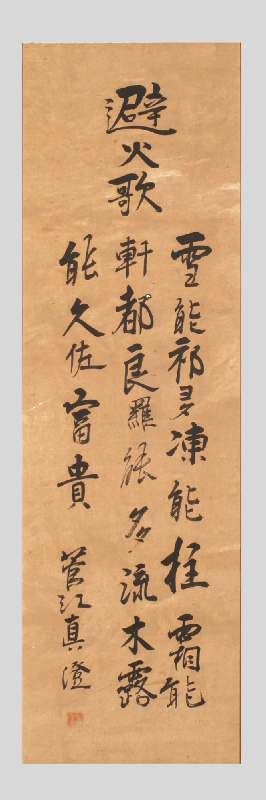 避火歌
雪能祁多凍能柱霜能
軒都良羅能多流木露
能久佐富貴
菅江真澄